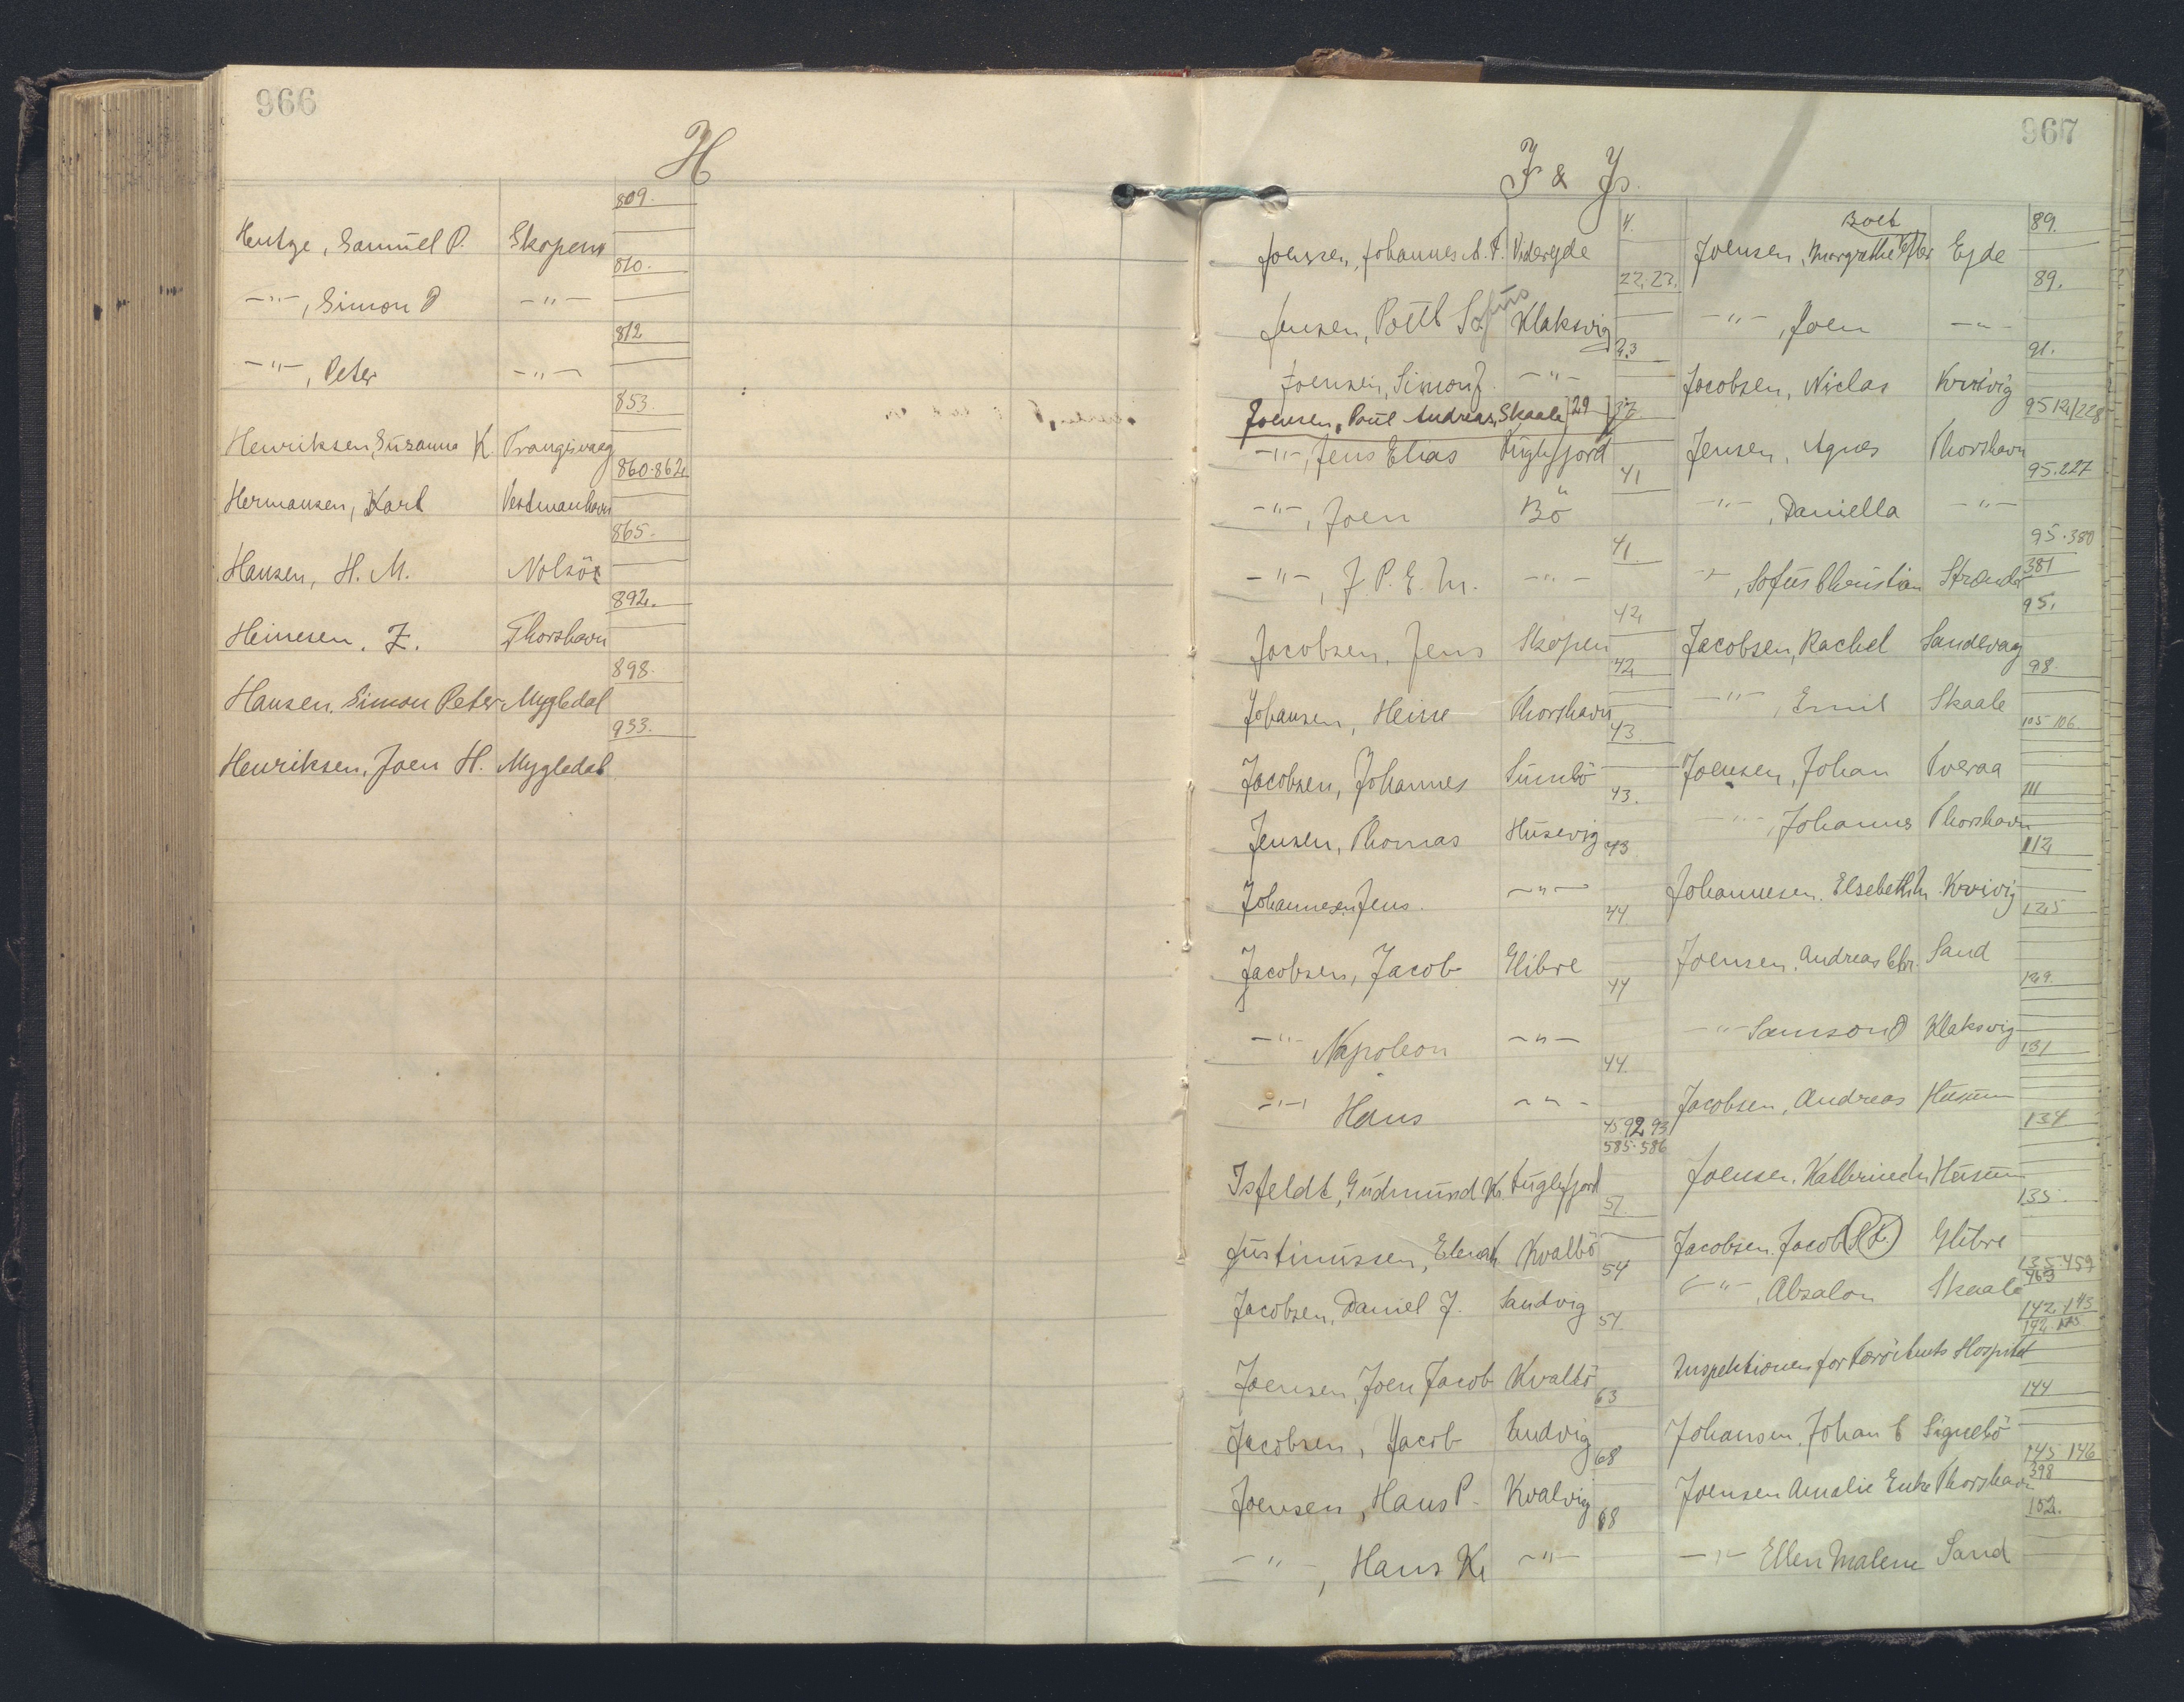 966
H
809.
Hentze, Samuel P. Skopen
810.
-"-, Simon P -"-
812
-"-, Peter -"-
853.
Henriksen, Susanna K. Trangisvaag
860-862
Hermansen, Karl Vestmanhavn
865.
Hansen, H. M. Nolsö
892.
Heinesen, Z. Thorshavn
898.
Hansen, Simon Peter Mygledal
933.
Henriksen, Joen H. Mygledal
967
I & J.
4.
Joensen, Johannes A. F. Videreyde
22.23.
Jensen, Poul Sofus Klaksvig
23
Joensen, Simon J. -"-
Joensen, Poul Andreas, Skaale 29 37
-"-, Jens Elias Fuglefjord
41
-"-, Joen Bö
41.
-"-, J. P. E. M. -"-
42
Jacobsen, Jens Skopen
42
Johansen, Heine Thorshavn
43.
Jacobsen, Johannes Sumbö
43.
Jensen, Thomas Husevig
43
Johannesen, Jens. -"-
44
Jacobsen, Jacob Glibre
44
-"- Napoleon -"-
44.
-"- Hans -"-
45.92.93
585-586
Isfeldt, Gudmund K. Fuglefjord
51.
Justinussen, Kvalbö
54
Jacobsen, Daniel J. Sandvig
54.
Joensen, Joen Jacob Kvalbö
63
Jacobsen, Jacob Sandvig
68
Joensen, Hans P. Kvalvig
68
-"-, Hans K. -"-
89.
Boet
Joensen, Margrethe Efter Ejde
89.
-"-, Joen -"-
91.
Jacobsen, Niclas Kvivig
95
Jensen, Agnes Thorshavn
95.227
-"-, Daniella -"-
95.380
381
-"-, Sofus Christian Strænder
95.
Jacobsen, Rachel Sandevaag
98.
-"-, Emil Skaale
105 106
Joensen, Johan Tveraa
111
-"-, Johannes Thorshavn
112
Johannesen, Elsebeth M Kvivig
125
Joensen, Andreas Chr. Sand
129.
-"- Samson P Klaksvig
131
Jacobsen, Andreas Husum
134
Joensen, Kathrine M Husum
135.
Jacobsen, Jacob Glibre
135.459
469
-"-, Absalon Skaale
142.143
142.
Inspektionen for Færö Amts Hospital
144
Johansen, Johan C Signebö
145 146
398
Joensen Amalie Enke Thorshavn
152.
-"- Ellen Malene Sand